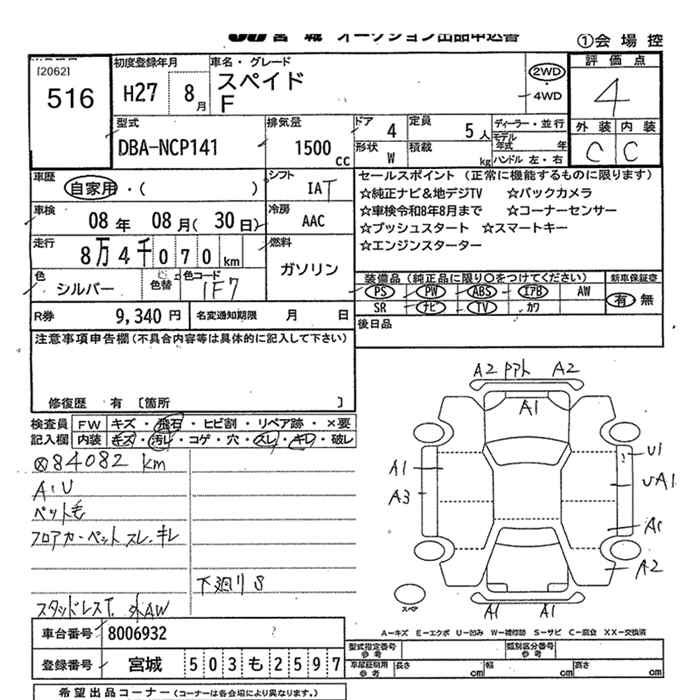 JU 宮城 オークション出品申込書
①会場控
[2062]
516
初度登録年月
H27 8月
車名・グレード
スペイド
F
2WD
4WD
評価点
4
外装 内装
C C
型式
DBA-NCP141
排気量
1500 cc
ドア 4
定員 5人
形状 W
積載 kg
ディーラー・並行
モデル年式 年
ハンドル 左・右
車歴
自家用・( )
シフト
IAT
車検
08年 08月(30日)
冷房
AAC
走行
8万4千070km
燃料
ガソリン
色
シルバー
色替
色コード
1F7
セールスポイント (正常に機能するものに限ります)
☆純正ナビ&地デジTV ☆バックカメラ
☆車検令和8年8月まで ☆コーナーセンサー
☆プッシュスタート ☆スマートキー
☆エンジンスターター
装備品 (純正品に限り○をつけてください)
新車保証書
PS PW ABS エアB AW
有 無
SR ナビ TV カワ
後日品
R券 9,340円
名変通知期限 月 日
注意事項申告欄(不具合内容等は具体的に記入して下さい)
修復歴 有 〔箇所 〕
検査員記入欄
FW キズ・飛石・ヒビ割・リペア跡・×要
内装 キズ・汚レ・コゲ・穴・スレ・キレ・破レ
⊗84082 km
A:U
ペット毛
フロアカーペットスレ・キレ
下廻りS
スタッドレスT. 外AW
A2 Pアト A2
A1
A1
A3
U1
UA1
A1
A2
A1 A1
スペア
A―キズ E―エクボ U―凹み W―補修跡 S―サビ C―腐食 XX―交換済
車台番号 8006932
登録番号 宮城 503も2597
型式指定番号 参考
類別区分番号 参考
車庫証明用 参考
長さ cm 幅 cm 高さ cm
希望出品コーナー (コーナーは各会場により異なります。)